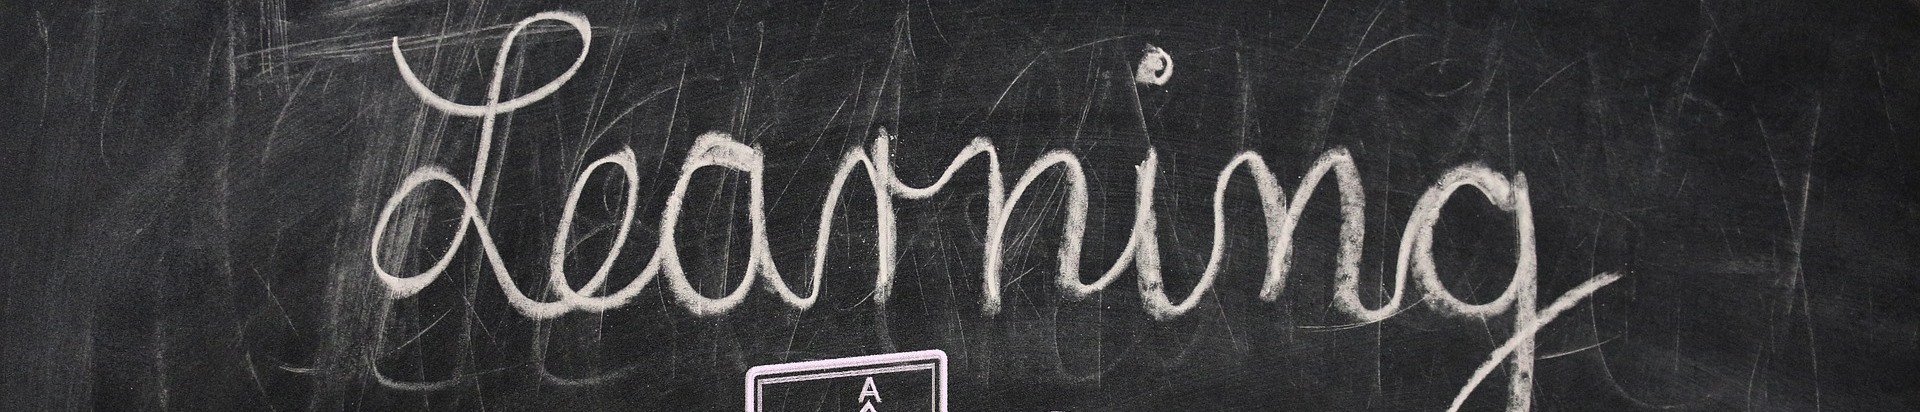 Learning
A